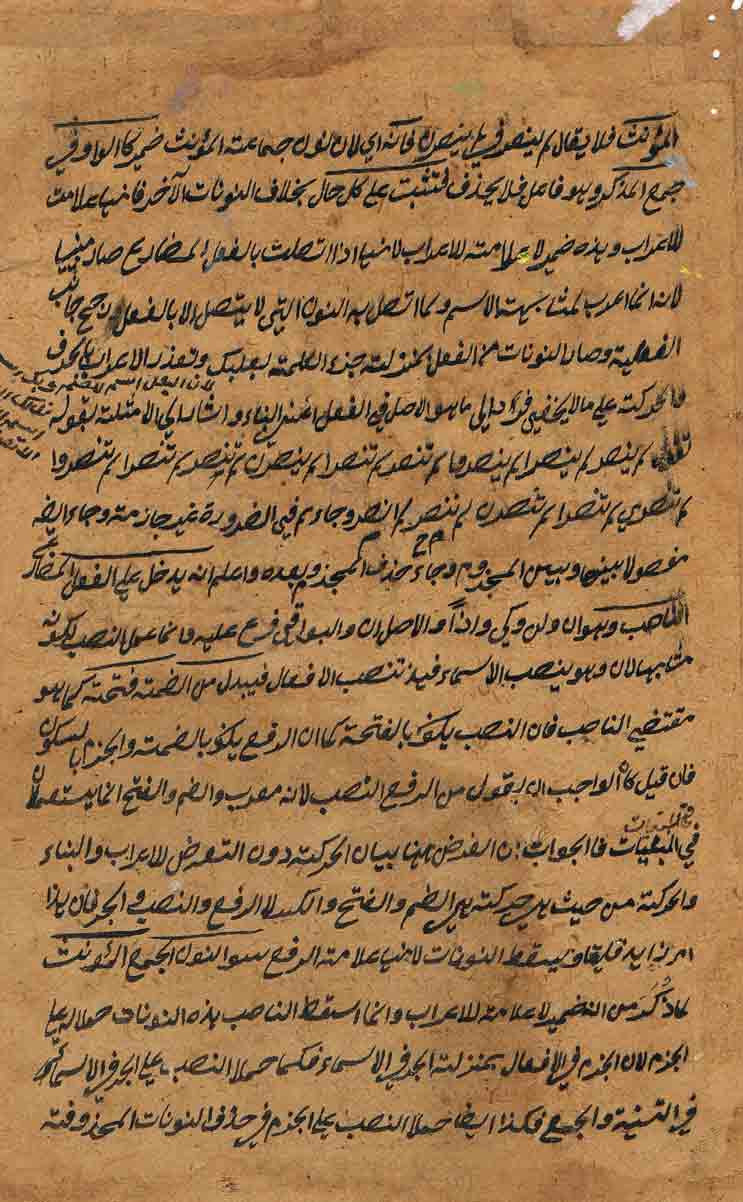 المؤنث فلا يقال لم ينصر في لم ينصرن فانه اي لان نون جماعة المؤنث ضمير كالواو في
جمع المذكر وهو فاعل فلا يحذف فتثبت على كل حال بخلاف النونات الآخر فانها علامت
للاعراب وهذه ضمير لا علامة للاعراب لانها اذا اتصلت بالفعل المضارع صار مبنيا
لانه انما اعرب لمشابهة الاسم ولما اتصل به النون التي لا يتصل الا بالفعل رجح جانب
الفعلية وصار النونات من الفعل بمنزلة جزء الكلمة لبعلبك وتعذر الاعراب بالحرف
والحركة على ما لا يخفى فرد الى ما هو الاصل في الفعل اعني البناء واشار الى الامثلة بقوله
تقول لم ينصر لم ينصرا لم ينصروا لم تنصر لم تنصرا لم ينصرن لم تنصر لم تنصرا لم تنصروا
لم تنصري لم تنصرا لم تنصرن لم ننصر لم انصر وجاء لم في الضرورة غير جازمة وجاء ايضا
مفصولا بينها وبين المجزوم وجاء حذف المجزوم بعده واعلم انه يدخل على الفعل المضارع
الناصب وهو ان ولن وكي واذاً والاصل ان والبواقي فرع عليه وانما عمل النصب لكونه
مشابها لان وهو ينصب الاسماء فهذ تنصب الافعال فيبدل من الضمة فتحة كما هو
مقتضي الناصب فان النصب يكون بالفتحة كما ان الرفع يكون بالضمة والجزم بالسكون
فان قيل كان الواجب ان يقول من الرفع النصب لانه معرب والضم والفتح انما يستعملان
في المبنيات فالجواب ان الغرض ههنا بيان الحركة دون التعرض للاعراب والبناء
والحركة من حيث هي حركة هي الضم والفتح والكسر لا الرفع والنصب والجر فان هذا
امر زايد فليقاو يسقط النونات لانها علامة الرفع سوا النون الجمع المؤنث
لما ذكر من انه ضمير لا علامة للاعراب وانما اسقط الناصب هذه النونات حملا له على
الجزم لان الجزم في الافعال بمنزلة الجر في الاسماء فكما حمل النصب على الجر في الاسماء
في التثنية والجمع فكذا ايضا حمل النصب على الجزم في حذف النونات المحذوفة